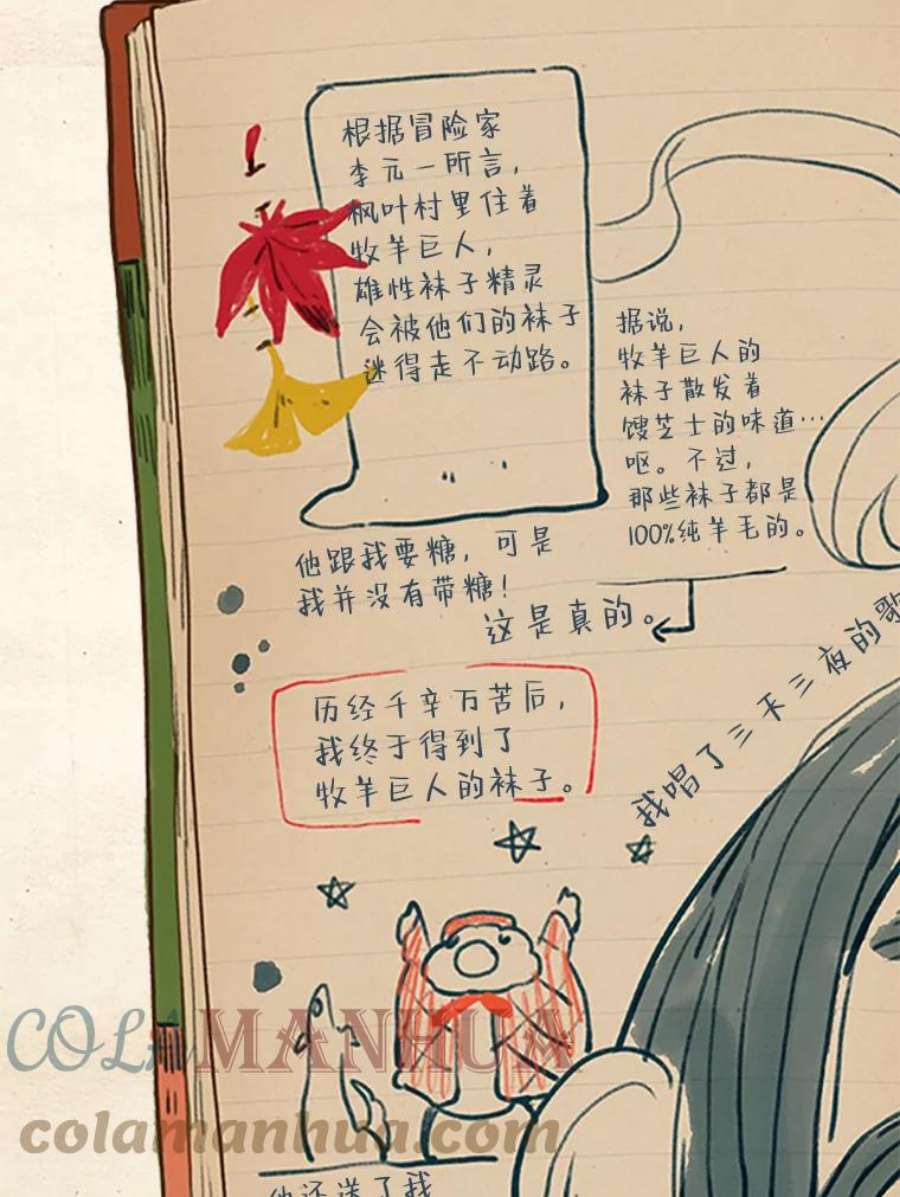 根据冒险家
李元一所言，
枫叶村里住着
牧羊巨人，
雄性袜子精灵
会被他们的袜子
迷得走不动路。
据说，
牧羊巨人的
袜子散发着
馊芝士的味道…
呕。不过，
那些袜子都是
100%纯羊毛的。
他跟我要糖，可是
我并没有带糖！
这是真的。
历经千辛万苦后，
我终于得到了
牧羊巨人的袜子。
我唱了三天三夜的歌
COLAMANHUA
colamanhua.com
他还送了我